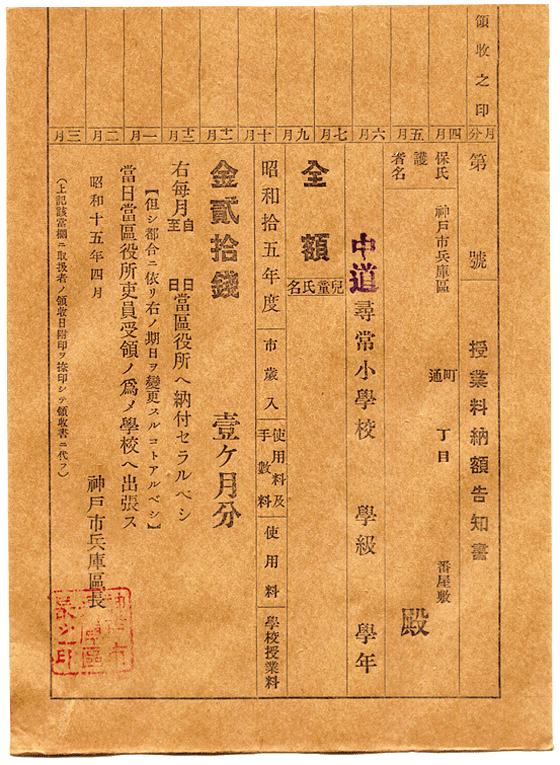 領收之印
月分 四月 五月 六月 七月 九月 十月 十一月 十二月 一月 二月 三月
第 號 授業料納額告知書
保護者氏名 神戸市兵庫區 町通 丁目 番屋敷
殿
中道尋常小學校 學級 學年
全額 兒童氏名
昭和拾五年度 市歲入 使用料及手數料 使用料 學校授業料
金貳拾錢 壹ケ月分
右每月自 日至 日當區役所ヘ納付セラルベシ
【但シ都合ニ依リ右ノ期日ヲ變更スルコトアルベシ】
當日當區役所吏員受領ノ爲メ學校ヘ出張ス
昭和十五年四月
神戸市兵庫區長
(上記該當欄ニ取扱者ノ領收日附印ヲ捺印シテ領收書ニ代フ)